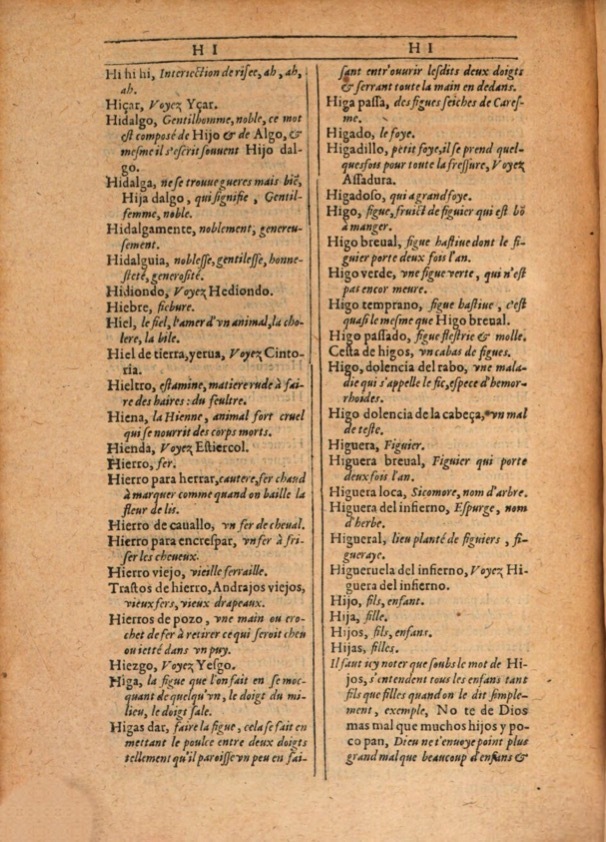 HI
Hi hi hi, Interiection de risee, ah, ah,
ah.
Hiçar, Voyez Yçar.
Hidalgo, Gentilhomme, noble, ce mot
est composé de Hijo & de Algo, &
mesme il s'escrit souuent Hijo dal-
go.
Hidalga, ne se trouue gueres mais biē,
Hija dalgo, qui signifie, Gentil-
femme, noble.
Hidalgamente, noblement, genereu-
sement.
Hidalguia, noblesse, gentilesse, honne-
steté, generosité.
Hidiondo, Voyez Hediondo.
Hiebre, fiebure.
Hiel, le fiel, l'amer d'vn animal, la cho-
lere, la bile.
Hiel de tierra, yerua, Voyez Cinto-
ria.
Hieltro, estamine, matiere rude à fai-
re des haires : du feultre.
Hiena, la Hienne, animal fort cruel
qui se nourrit des corps morts.
Hienda, Voyez Estiercol.
Hierro, fer.
Hierro para herrar, cautere, fer chaud
à marquer comme quand on baille la
fleur de lis.
Hierro de cauallo, vn fer de cheual.
Hierro para encrespar, vn fer à fri-
ser les cheueux.
Hierro viejo, vieille ferraille.
Trastos de hierro, Andrajos viejos,
vieux fers, vieux drapeaux.
Hierros de pozo, vne main ou cro-
chet de fer à retirer ce qui seroit cheu
ou ietté dans vn puy.
Hiezgo, Voyez Yesgo.
Higa, la figue que l'on fait en se moc-
quant de quelqu'vn, le doigt du mi-
lieu, le doigt sale.
Higas dar, faire la figue, cela se fait en
mettant le poulce entre deux doigts
tellement qu'il paroisse vn peu en fai-
HI
sant entr'ouurir lesdits deux doigts
& serrant toute la main en dedans.
Higa passa, des figues seiches de Cares-
me.
Higado, le foye.
Higadillo, petit foye, il se prend quel-
quesfois pour toute la fressure, Voyez
Assadura.
Higadoso, qui a grand foye.
Higo, figue, fruict de figuier qui est bō
à manger.
Higo breual, figue hastiue dont le fi-
guier porte deux fois l'an.
Higo verde, vne figue verte, qui n'est
pas encor meure.
Higo temprano, figue hastiue, c'est
quasi le mesme que Higo breual.
Higo passado, figue flestrie & molle.
Cesta de higos, vn cabas de figues.
Higo, dolencia del rabo, vne mala-
die qui s'appelle le fic, espece d'hemor-
rhoides.
Higo dolencia de la cabeça, vn mal
de teste.
Higuera, Figuier.
Higuera breual, Figuier qui porte
deux fois l'an.
Higuera loca, Sicomore, nom d'arbre.
Higuera del infierno, Espurge, nom
d'herbe.
Higueral, lieu planté de figuiers, fi-
gueraye.
Higueruela del infierno, Voyez Hi-
guera del infierno.
Hijo, fils, enfant.
Hija, fille.
Hijos, fils, enfans.
Hijas, filles.
Il faut icy noter que soubs le mot de Hi-
jos, s'entendent tous les enfans tant
fils que filles quand on le dit simple-
ment, exemple, No te de Dios
mas mal que muchos hijos y po-
co pan, Dieu ne t'enuoye point plus
grand mal que beaucoup d'enfans &